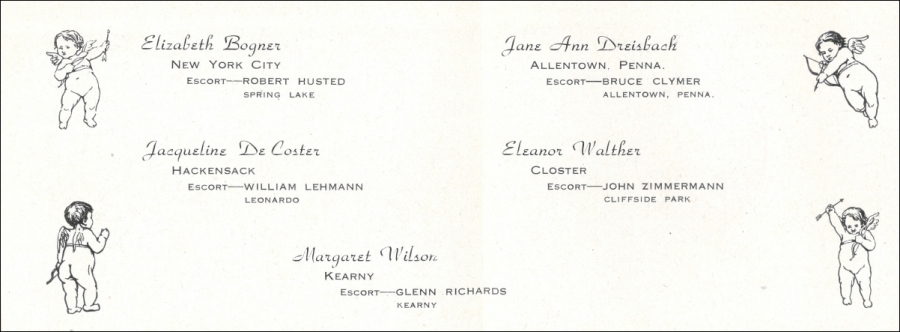 Elizabeth Bogner
NEW YORK CITY
ESCORT—ROBERT HUSTED
SPRING LAKE
Jane Ann Dreisbach
ALLENTOWN, PENNA.
ESCORT—BRUCE CLYMER
ALLENTOWN, PENNA.
Jacqueline De Coster
HACKENSACK
ESCORT—WILLIAM LEHMANN
LEONARDO
Eleanor Walther
CLOSTER
ESCORT—JOHN ZIMMERMANN
CLIFFSIDE PARK
Margaret Wilson
KEARNY
ESCORT—GLENN RICHARDS
KEARNY